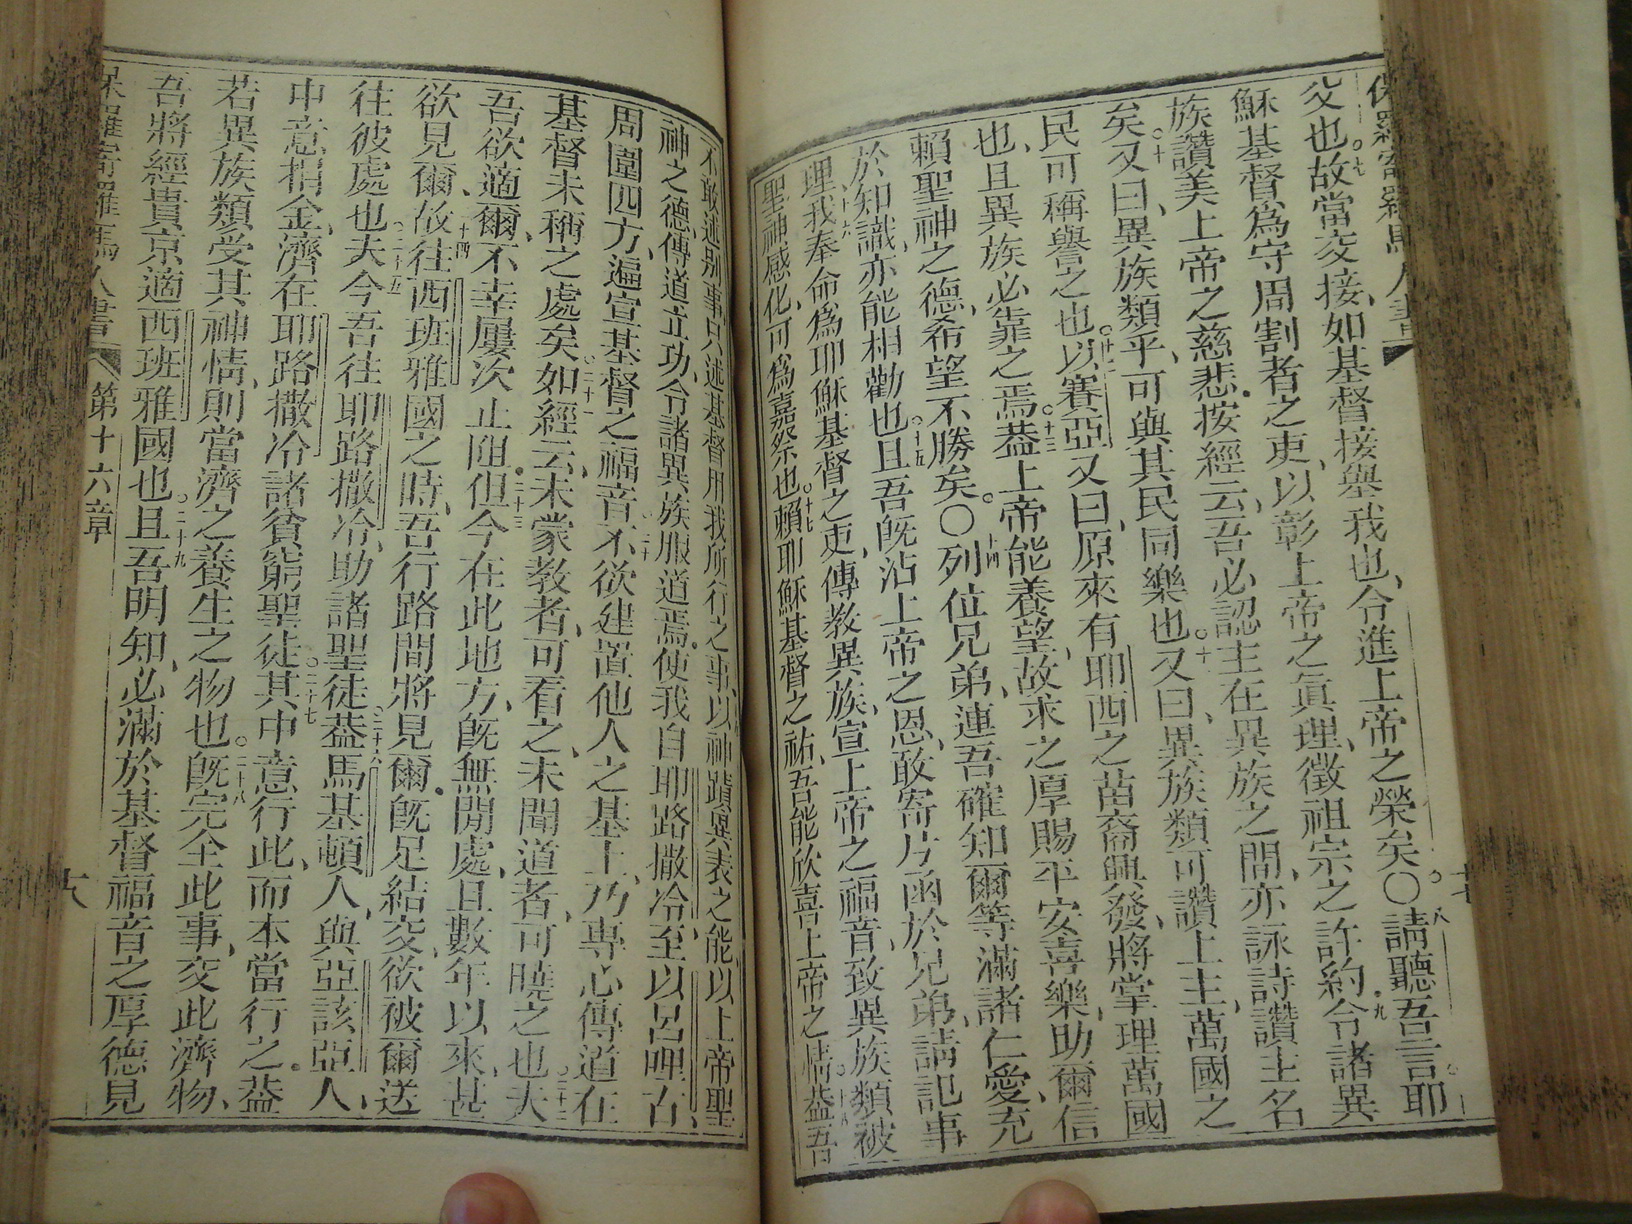 保羅寄羅馬人書
父也、○七故當交接、如基督接舉我也、令進上帝之榮矣。○○八請聽吾言、耶
穌基督為守周割者之吏、以彰上帝之眞理、徵祖宗之許約、○九令諸異
族讚美上帝之慈悲、按經云、吾必認主在異族之間、亦詠詩讚主名
矣、○十又曰、異族類乎、可與其民同樂也、○十一又曰、異族類可讚上主、萬國之
民可稱譽之也、○十二以賽亞又曰、原來有耶西之苗裔興發、將掌理萬國
也、且異族必靠之焉、○十三葢上帝能養望、故求之厚賜平安喜樂、助爾信
賴聖神之德、希望不勝矣。○○十四列位兄弟、連吾確知爾等滿諸仁愛、充
於知識、亦能相勸也、○十五且吾旣沾上帝之恩、敢寄片函於兄弟、請記事
理、○十六我奉命為耶穌基督之吏、傳教異族、宣上帝之福音、致異族類被
聖神感化、可為嘉祭也、○十七賴耶穌基督之祐、吾能欣喜上帝之情、○十八葢吾
十七
不敢述別事、只述基督用我所行之事、以神蹟異表之能、以上帝聖
神之德、傳道立功、令諸異族服道焉、使我自耶路撒冷、至以呂哩古、
周圍四方、遍宣基督之福音、○二十不欲建置他人之基上、乃專心傳道在
基督未稱之處矣、○二十一如經云、未蒙教者、可看之、未聞道者、可曉之也、○二十二夫
吾欲適爾、不幸屢次止阻、○二十三但今在此地方、旣無閒處、且數年以來、甚
欲見爾、○二十四故往西班雅國之時、吾行路間將見爾、旣足結交、欲被爾送
往彼處也、○二十五夫今吾往耶路撒冷、助諸聖徒、○二十六葢馬基頓人、與亞該亞人、
中意捐金、濟在耶路撒冷諸貧窮聖徒、○二十七其中意行此、而本當行之、葢
若異族類受其神情、則當濟之養生之物也、○二十八旣完全此事、交此濟物、
吾將經貴京適西班雅國也、○二十九且吾明知、必滿於基督福音之厚德見
保羅寄羅馬人書 第十六章 十八